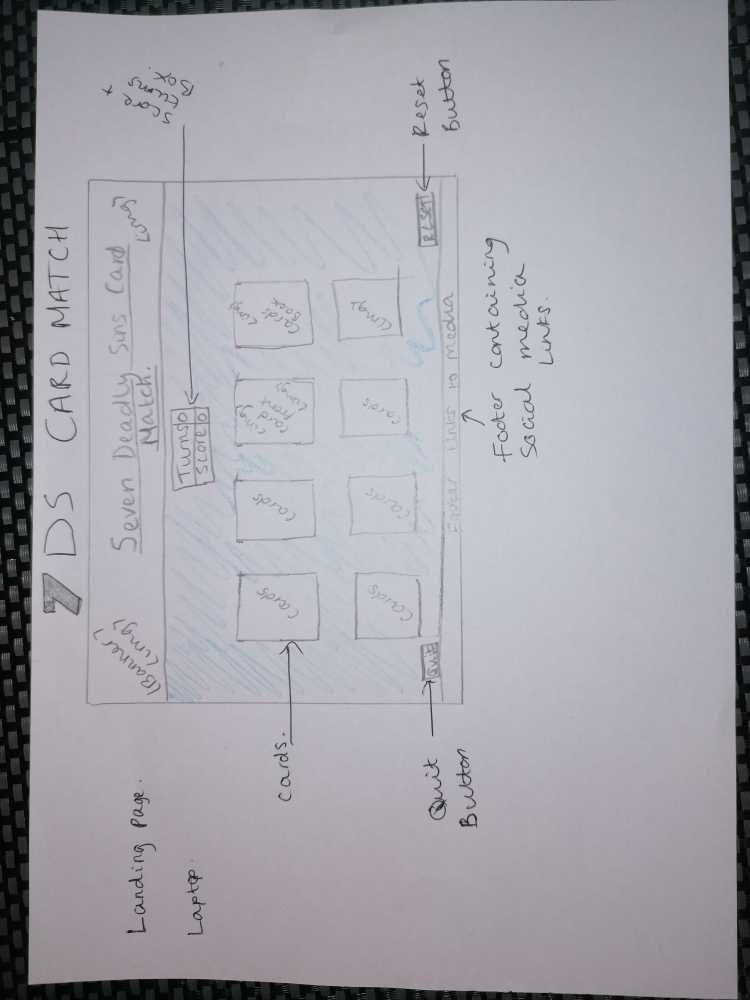 7DS CARD MATCH
Landing Page.
Laptop.
(Banner)
(img)
Seven Deadly Sins Card
Match.
(img)
Turns 0
Score 0
Cards.
Cards
Cards
Card
Front
(img)
Cards
Back
(img)
Cards
Cards
Cards
(img)
Quit
RESET
Footer Links to Media
Quit
Button
Reset
Button
Footer containing
Social media
Links.